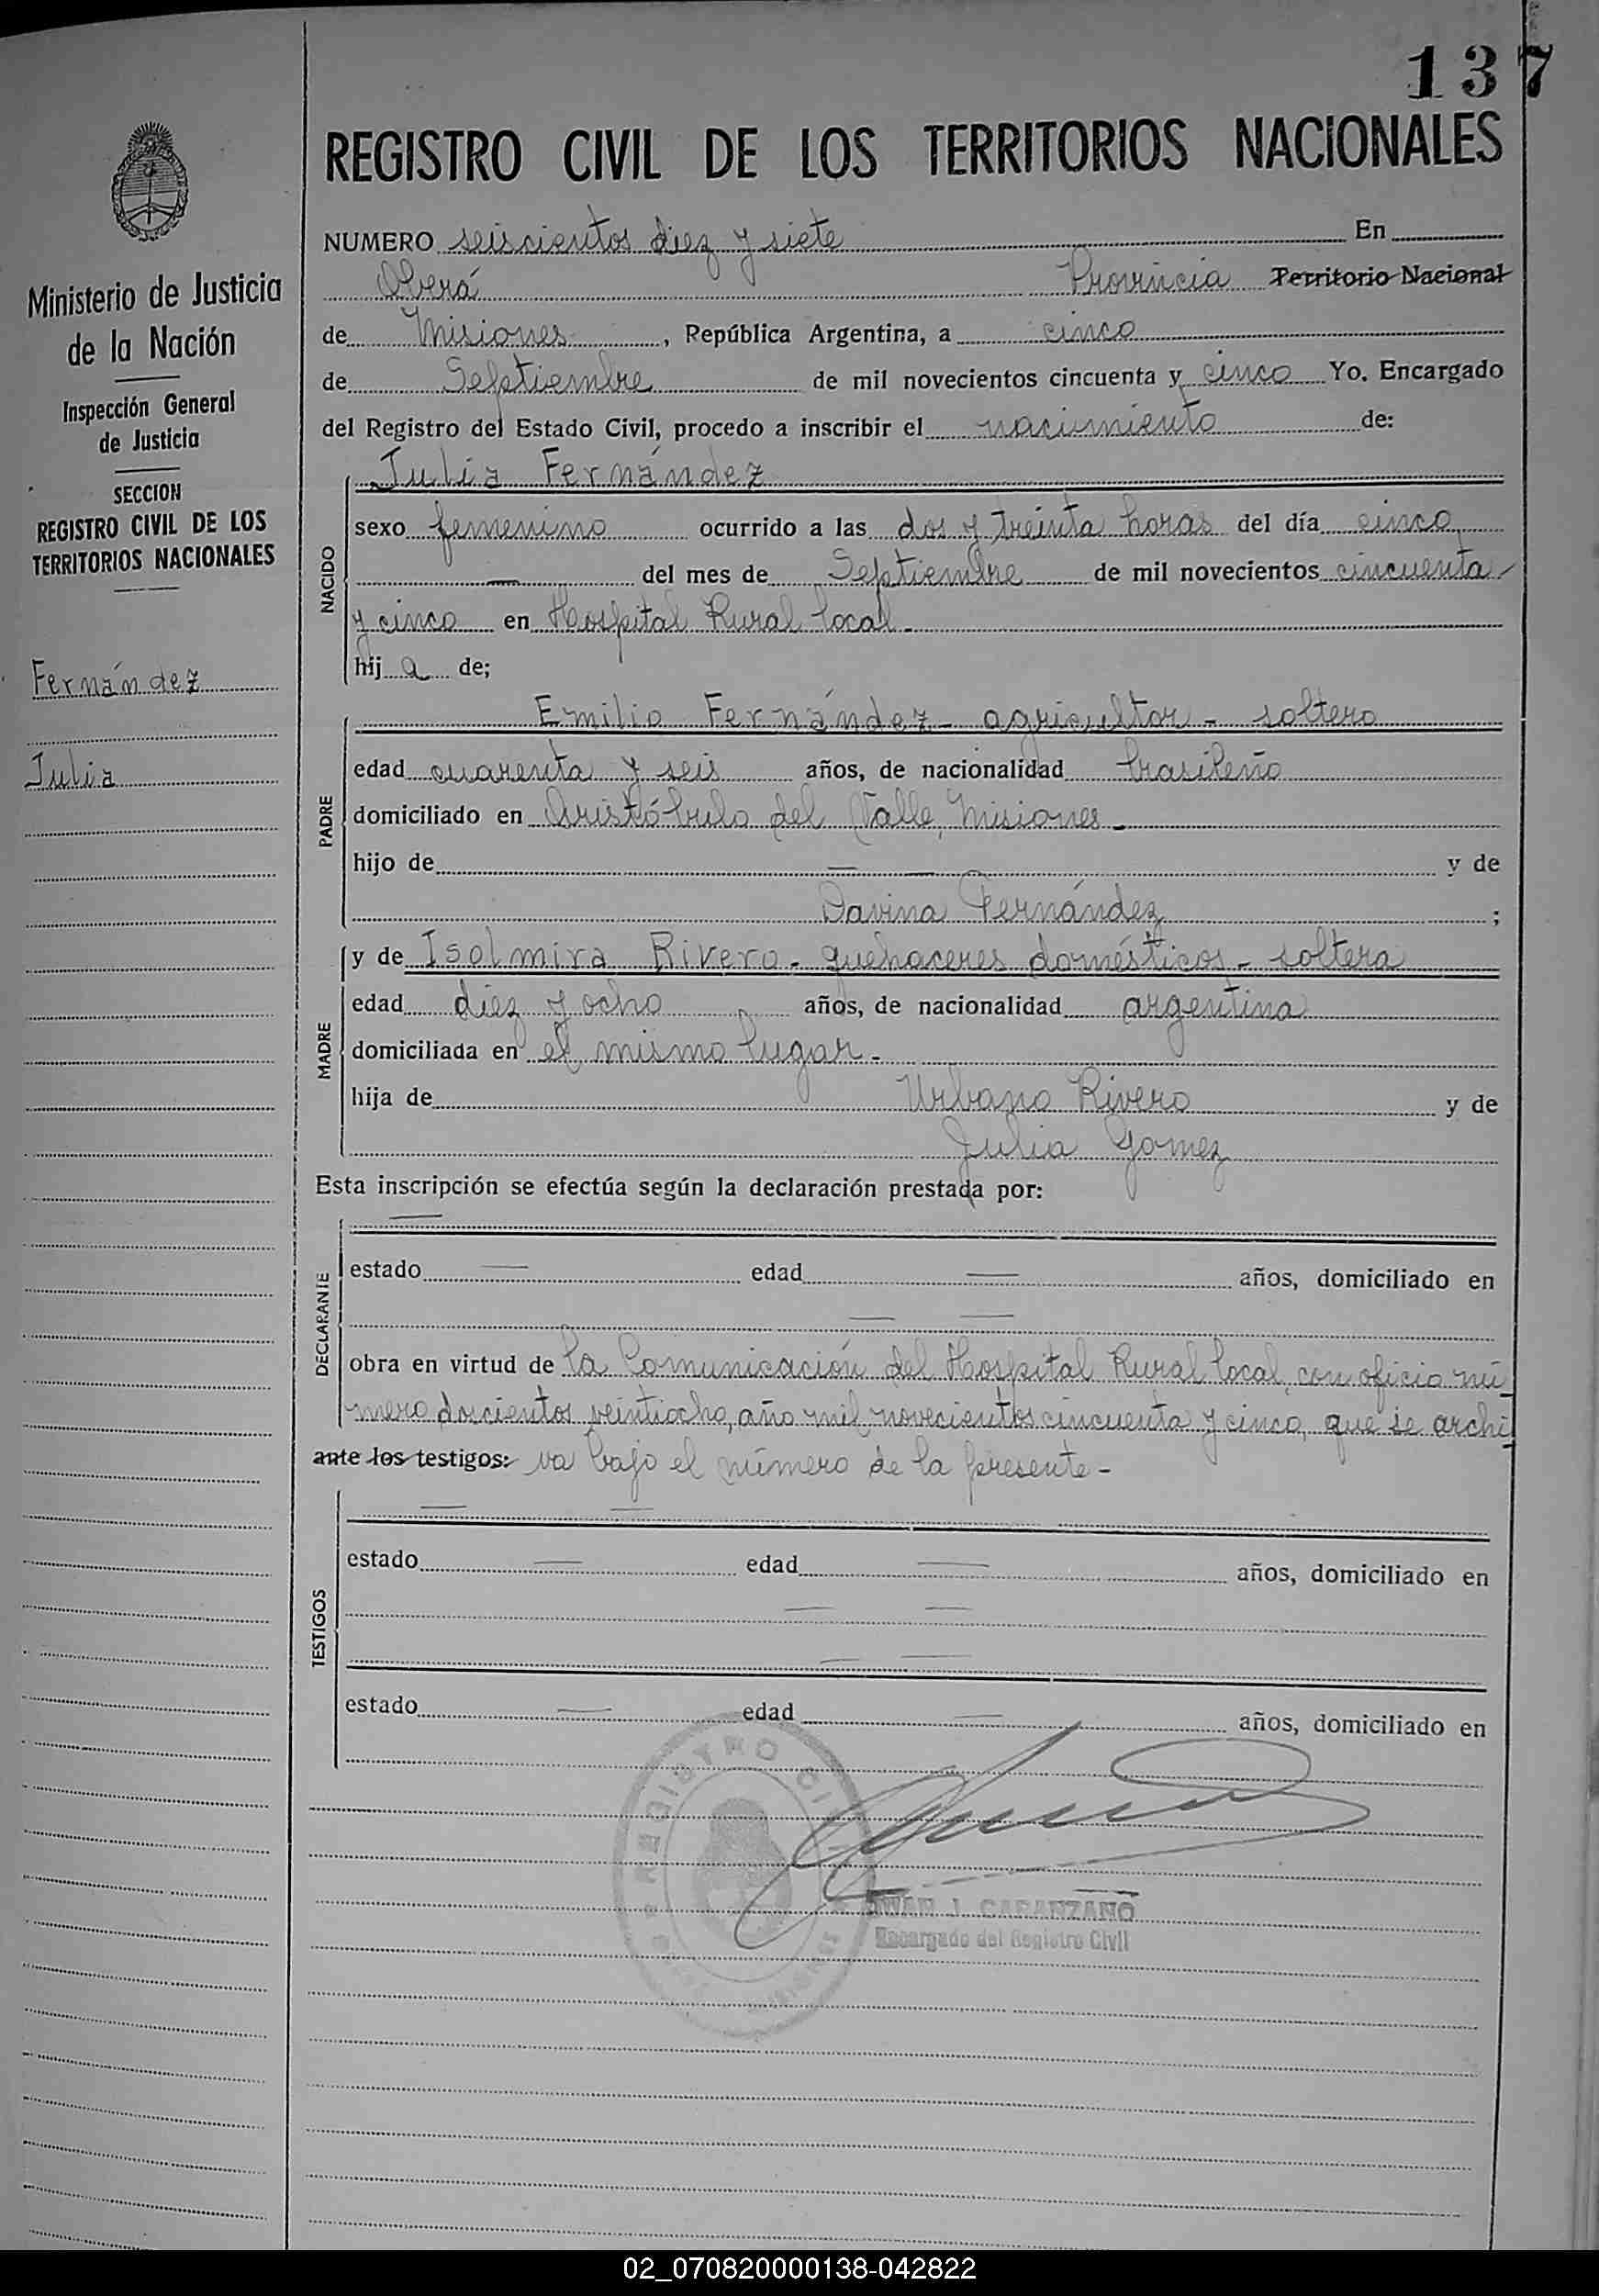 137
REGISTRO CIVIL DE LOS TERRITORIOS NACIONALES
Ministerio de Justicia
de la Nación
Inspección General
de Justicia
SECCION
REGISTRO CIVIL DE LOS
TERRITORIOS NACIONALES
Fernández
Julia
NUMERO seiscientos diez y siete En
Oberá Provincia Territorio Nacional
de Misiones, República Argentina, a cinco
de Septiembre de mil novecientos cincuenta y cinco Yo. Encargado
del Registro del Estado Civil, procedo a inscribir el nacimiento de:
NACIDO
Julia Fernández
sexo femenino ocurrido a las dos y treinta horas del día cinco
— del mes de Septiembre de mil novecientos cincuenta
y cinco en Hospital Rural local.-
hija de;
PADRE
Emilio Fernández - agricultor - soltero
edad cuarenta y seis años, de nacionalidad brasileño
domiciliado en Aristóbulo del Valle, Misiones -
hijo de — — y de
Davina Fernández ;
MADRE
y de Isolmira Rivero - quehaceres domésticos - soltera
edad diez y ocho años, de nacionalidad argentina
domiciliada en el mismo lugar -
hija de Urbano Rivero y de
Julia Gomez
Esta inscripción se efectúa según la declaración prestada por:
DECLARANTE
—
estado — edad — años, domiciliado en
— —
obra en virtud de la Comunicación del Hospital Rural local, con oficio nú-
mero doscientos veintiocho, año mil novecientos cincuenta y cinco, que se archi
ante los testigos: va bajo el número de la presente -
TESTIGOS
— —
estado — edad — años, domiciliado en
— —
— —
estado — edad — años, domiciliado en
REGISTRO CIVIL
J. CARANZANO
Encargado del Registro Civil
02_070820000138-042822